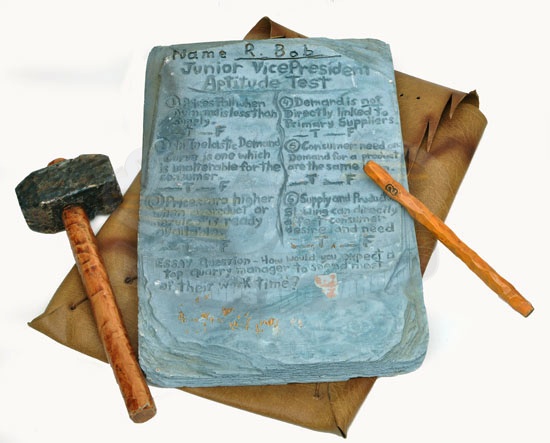 Name R. Bob
Junior Vice President
Aptitude Test
① Prices fall when
demand is less than
supply.
T F
② Inelastic Demand
Curve is one which
is unalterable for the
consumer.
T F
Prices are higher
when product or
is ready
F
④ Demand is not
Directly linked to
Primary Suppliers.
T F
⑤ Consumer need
Demand for a product
are the same
T F
⑥ Supply and
can directly
consumer
desire and need
T F
Essay Question - How would you expect a
top quarry manager to spend most
of their work time?